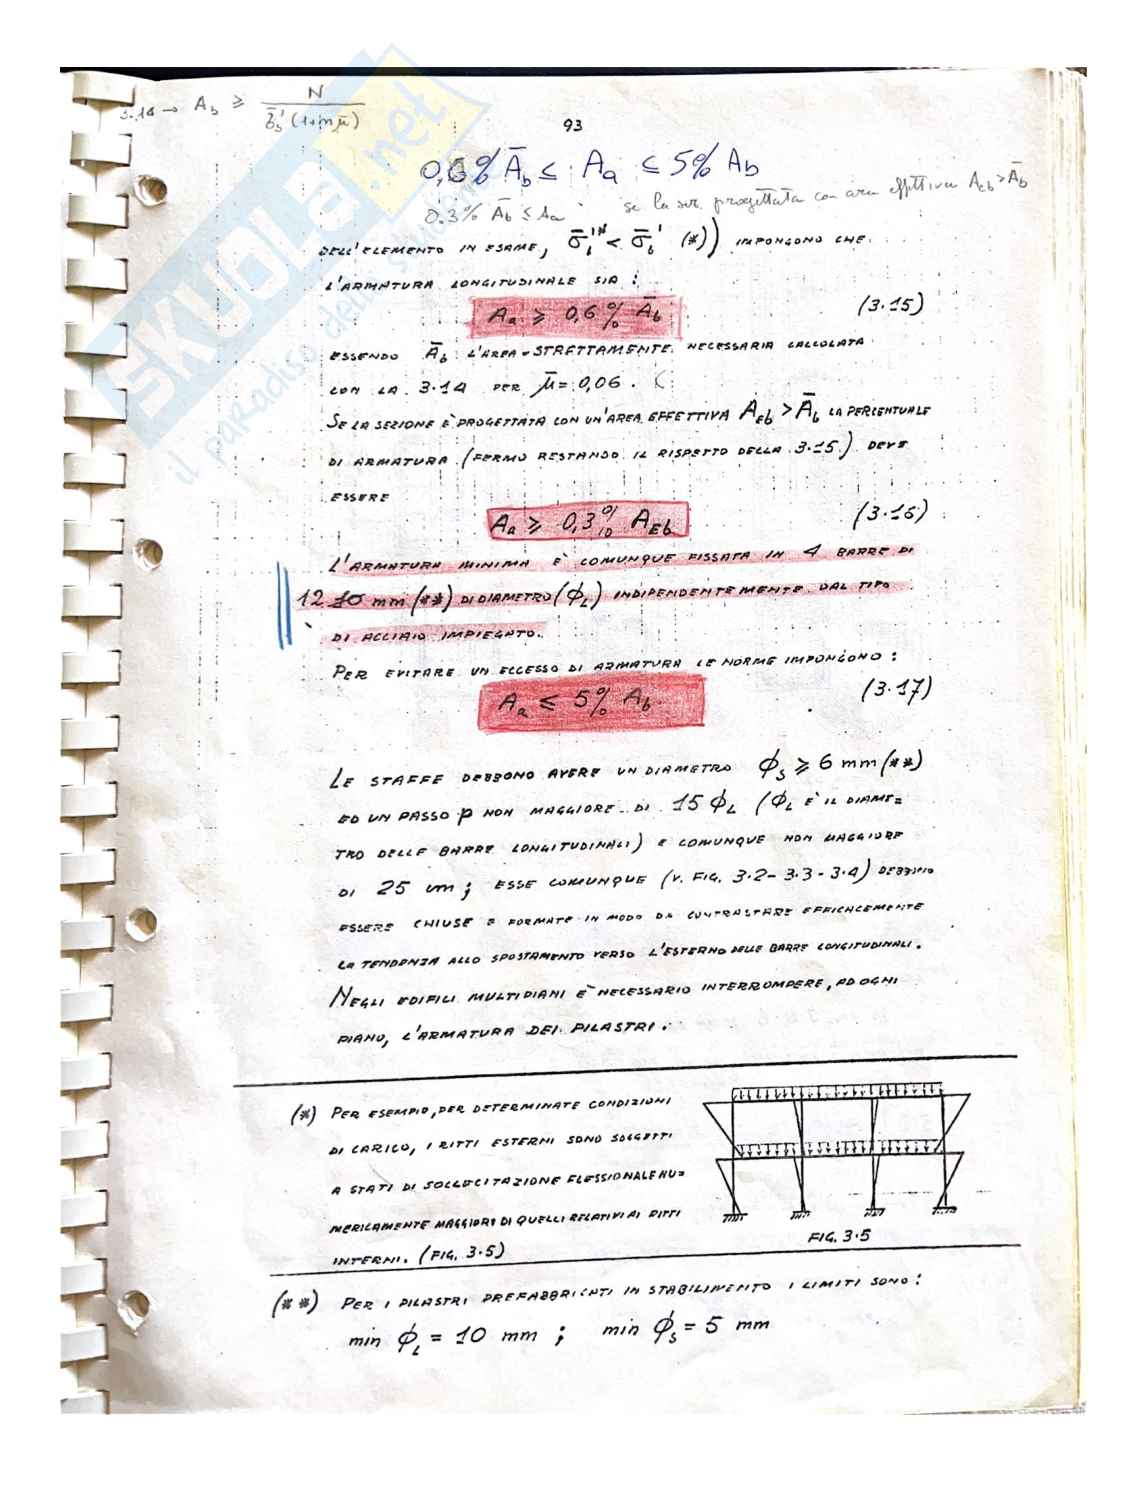 3.14 → A_b ≥ N / σ̄_b' (1+m μ̄)
93
0,6% Ā_b ≤ A_a ≤ 5% A_b
0.3% Ā_b ≤ A_a se la sez. progettata con area effettiva A_Eb > Ā_b
DELL'ELEMENTO IN ESAME, σ̄_b'^IN < σ̄_b' (*)) IMPONGONO CHE
L'ARMATURA LONGITUDINALE SIA :
A_a ≥ 0,6 % Ā_b (3.15)
ESSENDO Ā_b L'AREA STRETTAMENTE NECESSARIA CALCOLATA
CON LA 3.14 PER μ̄ = 0,06 .
SE LA SEZIONE È PROGETTATA CON UN'AREA EFFETTIVA A_Eb > Ā_b LA PERCENTUALE
DI ARMATURA (FERMO RESTANDO IL RISPETTO DELLA 3.15) DEVE
ESSERE
A_a ≥ 0,3 % A_Eb (3.16)
L'ARMATURA MINIMA È COMUNQUE FISSATA IN 4 BARRE DI
12 10 mm (**) DI DIAMETRO (ϕ_L) INDIPENDENTEMENTE DAL TIPO
DI ACCIAIO IMPIEGATO.
PER EVITARE UN ECCESSO DI ARMATURA LE NORME IMPONGONO :
A_a ≤ 5% A_b (3.17)
LE STAFFE DEBBONO AVERE UN DIAMETRO ϕ_s ≥ 6 mm (**)
ED UN PASSO p NON MAGGIORE DI 15 ϕ_L (ϕ_L È IL DIAME=
TRO DELLE BARRE LONGITUDINALI) E COMUNQUE NON MAGGIORE
DI 25 cm ; ESSE COMUNQUE (V. FIG. 3.2 - 3.3 - 3.4) DEBBONO
ESSERE CHIUSE E FORMATE IN MODO DA CONTRASTARE EFFICACEMENTE
LA TENDENZA ALLO SPOSTAMENTO VERSO L'ESTERNO DELLE BARRE LONGITUDINALI.
NEGLI EDIFICI MULTIPIANI È NECESSARIO INTERROMPERE, AD OGNI
PIANO, L'ARMATURA DEI PILASTRI.
(*) PER ESEMPIO, PER DETERMINATE CONDIZIONI
DI CARICO, I RITTI ESTERNI SONO SOGGETTI
A STATI DI SOLLECITAZIONE FLESSIONALE NU=
MERICAMENTE MAGGIORI DI QUELLI RELATIVI AI RITTI
INTERNI. (FIG. 3.5)
FIG. 3.5
(**) PER I PILASTRI PREFABBRICATI IN STABILIMENTO I LIMITI SONO :
min ϕ_L = 10 mm ; min ϕ_s = 5 mm
SKUOLA.net
il paradiso dello studente